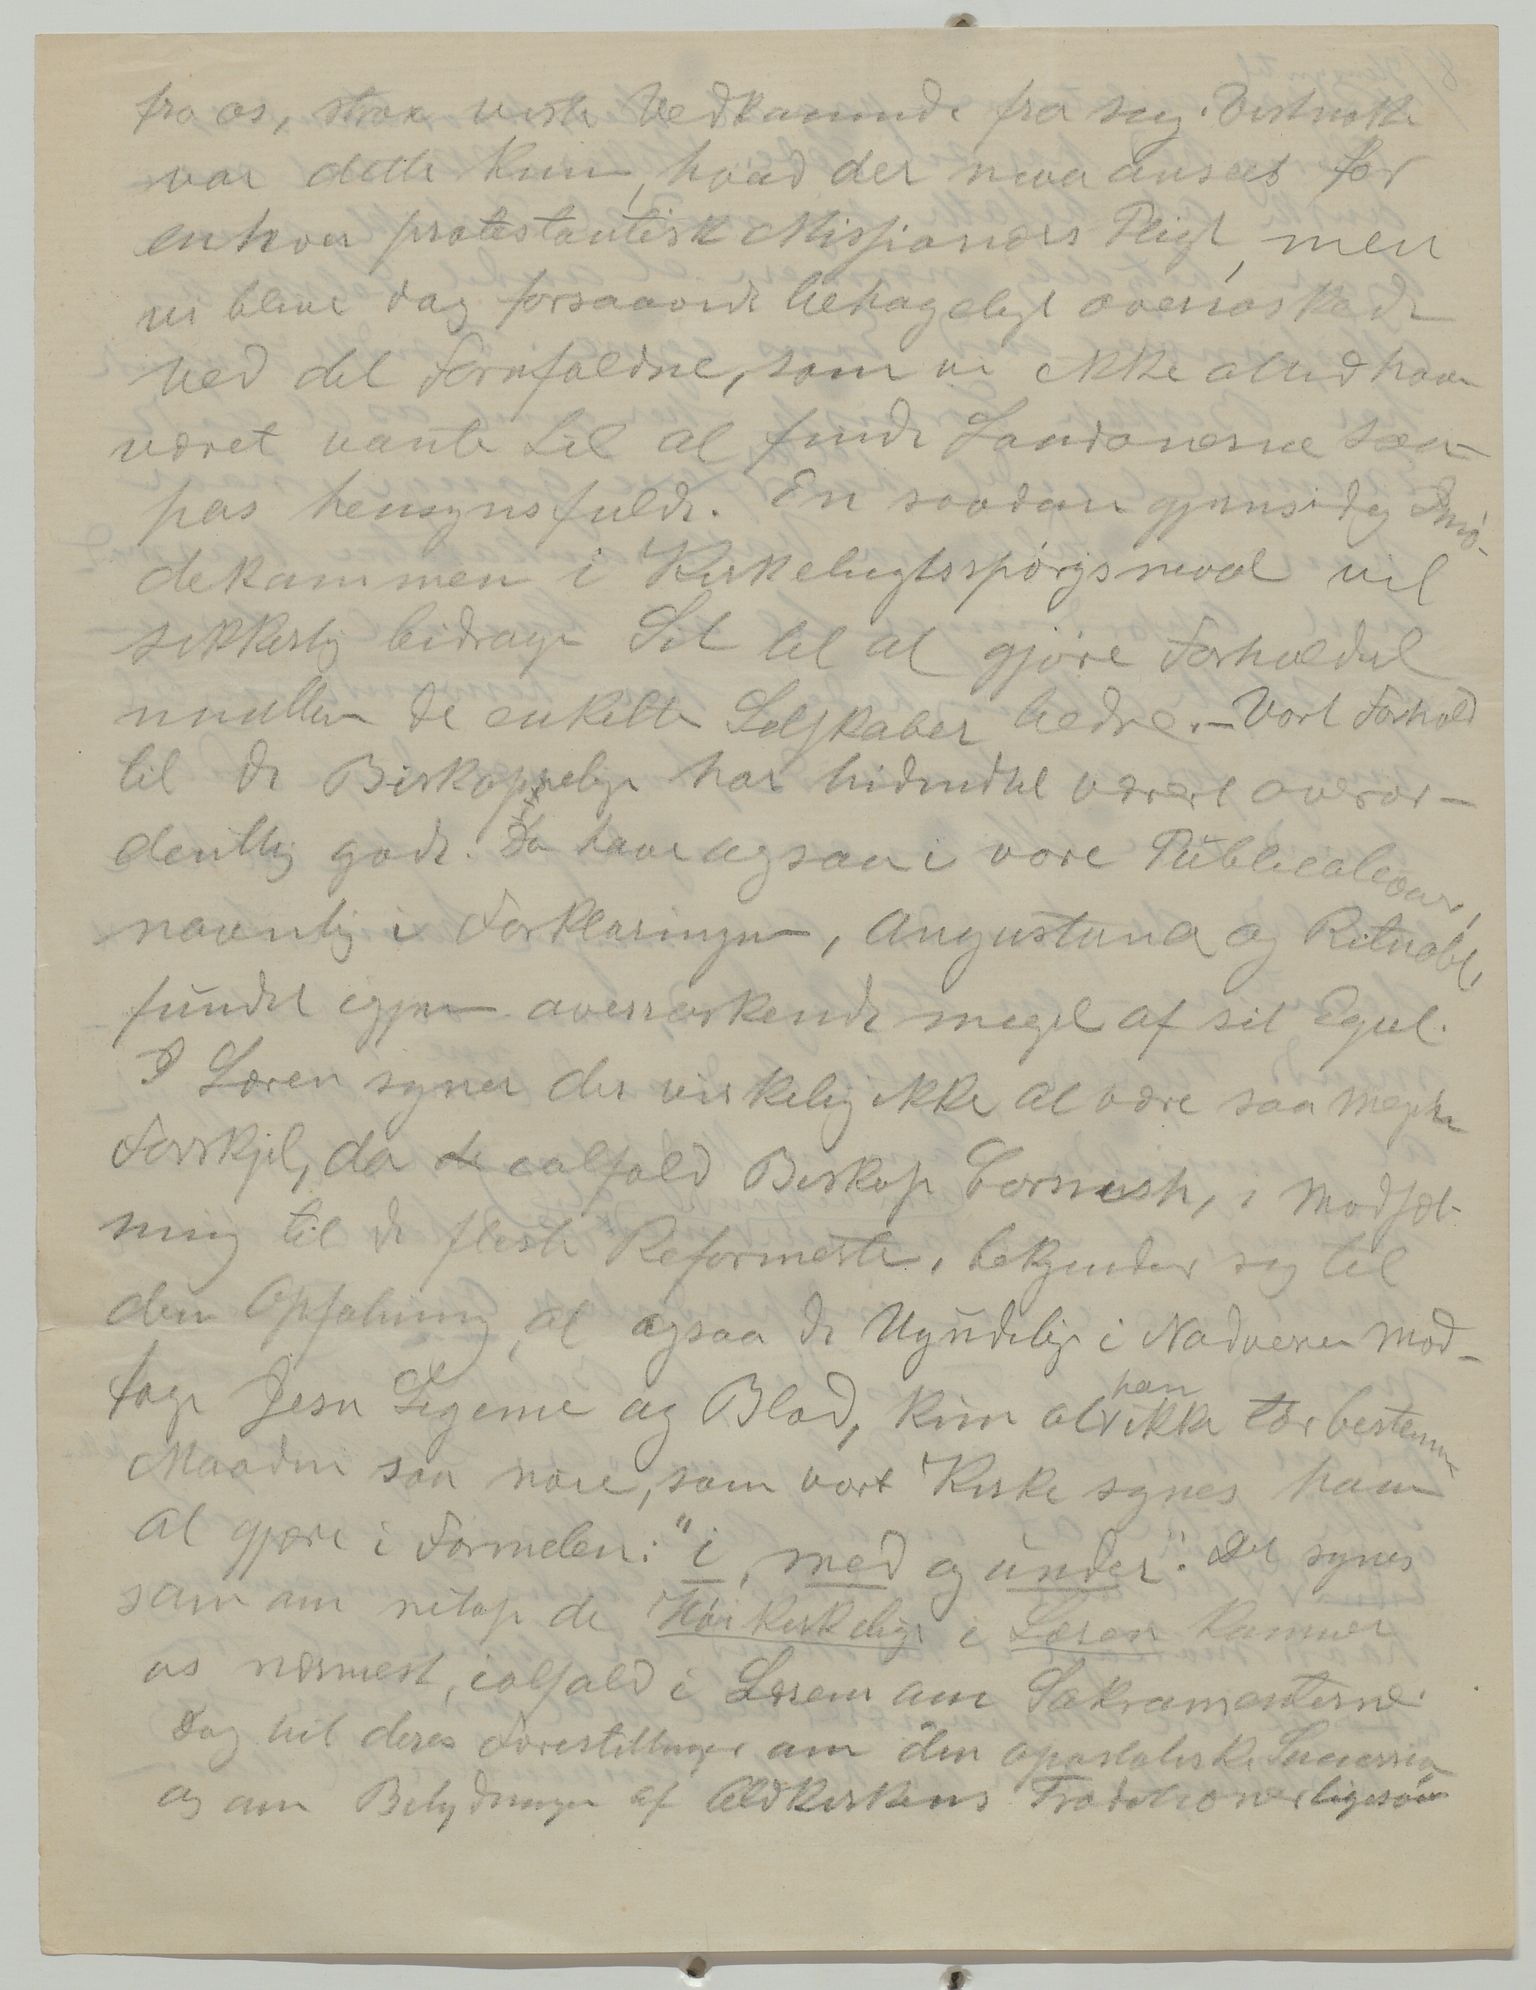 fra os, strax viste Vedkommende fra sig. Vistnok
var dette kun, hvad der maa ansees for
enhver protestantisk Missionærs Pligt, men
vi bleve dog forsaavidt behageligt overraskede
ved det Forefaldne, som vi ikke altid have
været vante til at finde Londonerne saa-
pas hensynsfulde. En saadan gjensidig Imø-
dekommen i Kirketugtsspørgsmaal vil
sikkerlig bidrage Sit til at gjøre Forholdet
mellem de enkelte Selskaber bedre. – Vort Forhold
til de Biskoppelige har hidindtil været overor-
dentlig godt. De have ogsaa i vore Publicationer,
navnlig i Forklaringen, Augustana og Ritualet,
fundet igjen overraskende meget af sit Eget.
I Læren synes der virkelig ikke at være saa megen
Forskjel, da ialfald Biskop Cornish, i Modsæt-
ning til de fleste Reformerte, bekjender sig til
den Opfatning, at ogsaa de Ugudelige i Nadveren mod-
tage Jesu Legeme og Blod, kun at han ikke tør bestemme
Maaden saa nøie, som vort Kirke synes ham
at gjøre i Formelen: "i, med og under". Det synes
som om netop de Høikirkelige i Læren kommer
os nærmest, ialfald i Læren om Sakramenterne.
Dog vil deres Forestillinger om den apostoliske Succession
og om Betydningen af Oldkirkens Traditioner ligesaa